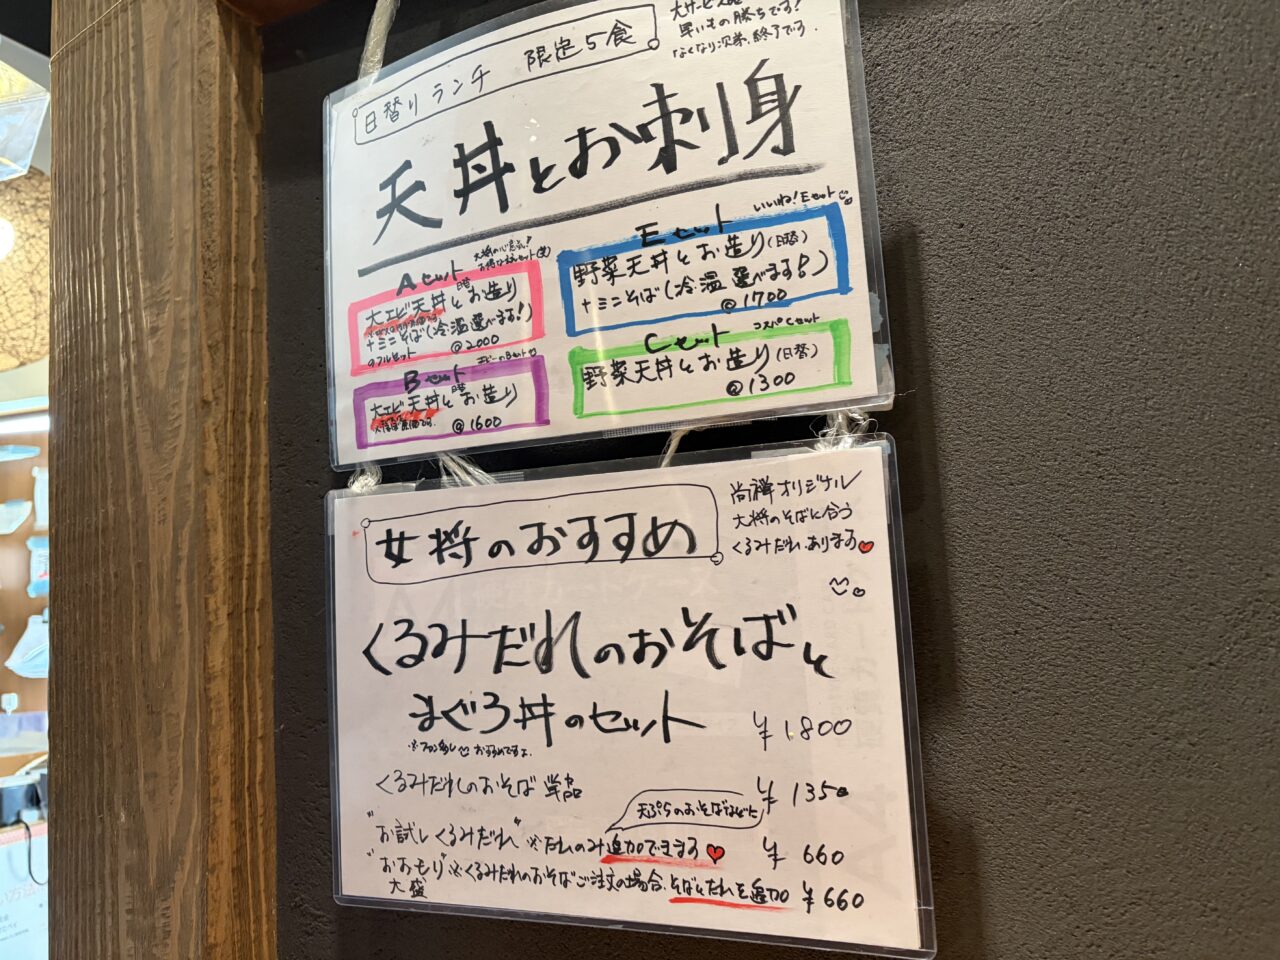 日替り ランチ 限定5食
早いもの勝ちです!
なくなり次第、終了です.
天丼とお刺身
Aセット
大エビ天丼とお造り
+ミニそば(冷温選べます!)
のフルセット @2000
Eセット いいね!Eセット
野菜天丼とお造り(日替)
+ミニそば(冷温選べます!)
@1700
Bセット
大エビ天丼とお造り
@1600
Cセット コスパCセット
野菜天丼とお造り(日替)
@1300
女将のおすすめ
尚禅オリジナル
大将のそばに合う
くるみだれ、あります
くるみだれのおそばと
まぐろ丼のセット ¥1.800
※ファン多し おすすめですよ.
くるみだれのおそば 単品 ¥1350
天ぷらのおそばなどに
"お試し くるみだれ" ※たれのみ追加できます ¥660
"おおもり" ※くるみだれのおそばご注文の場合、そばとたれを追加 ¥660
大盛